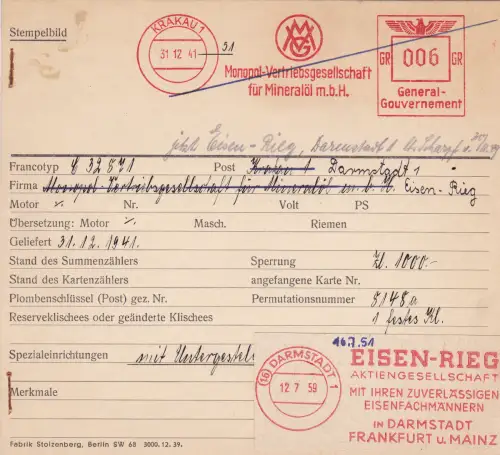 Stempelbild
KRAKAU 1
31 12 41
31
MVG
Monopol-Vertriebsgesellschaft
für Mineralöl m.b.H.
GR 006 GR
General-
Gouvernement
jetzt Eisen-Rieg, Darmstadt 1
Francotyp C 32571 Post Krakau 1 Darmstadt 1
Firma Monopol-Vertriebsgesellschaft für Mineralöl m.b.H. Eisen-Rieg
Motor ./. Nr. Volt PS
Übersetzung: Motor ./. Masch. Riemen
Geliefert 31.12.1941.
Stand des Summenzählers Sperrung Zl. 1000.-
Stand des Kartenzählers angefangene Karte Nr.
Plombenschlüssel (Post) gez. Nr. Permutationsnummer 5148a
Reserveklischees oder geänderte Klischees 1 festes Kl.
Spezialeinrichtungen mit Untergestell
16.7.51
Merkmale
(16) DARMSTADT 1
12 7 59
EISEN-RIEG
AKTIENGESELLSCHAFT
MIT IHREN ZUVERLÄSSIGEN
EISENFACHMÄNNERN
IN DARMSTADT
FRANKFURT u. MAINZ
Fabrik Stolzenberg, Berlin SW 68 3000. 12. 39.